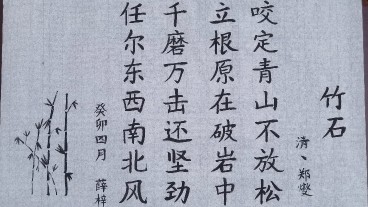 竹石
清、郑燮
咬定青山不放松
立根原在破岩中
千磨万击还坚劲
任尔东西南北风
癸卯四月 薛梓